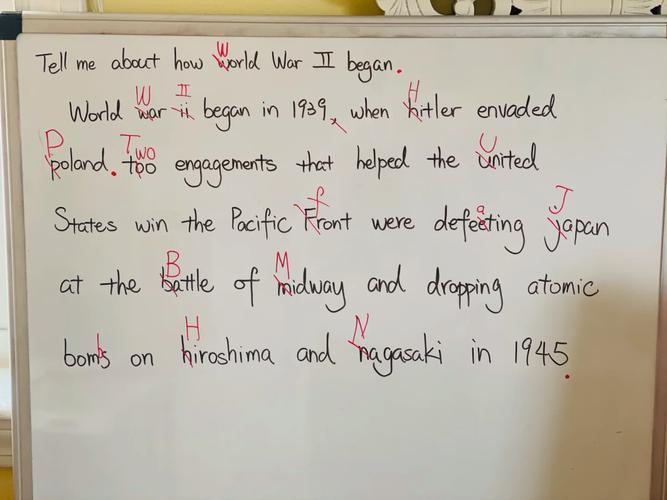 Tell me about how World War II began.
World War II began in 1939, when Hitler envaded
Poland. Two engagements that helped the United
States win the Pacific front were defeating Japan
at the Battle of Midway and dropping atomic
bombs on Hiroshima and Nagasaki in 1945.